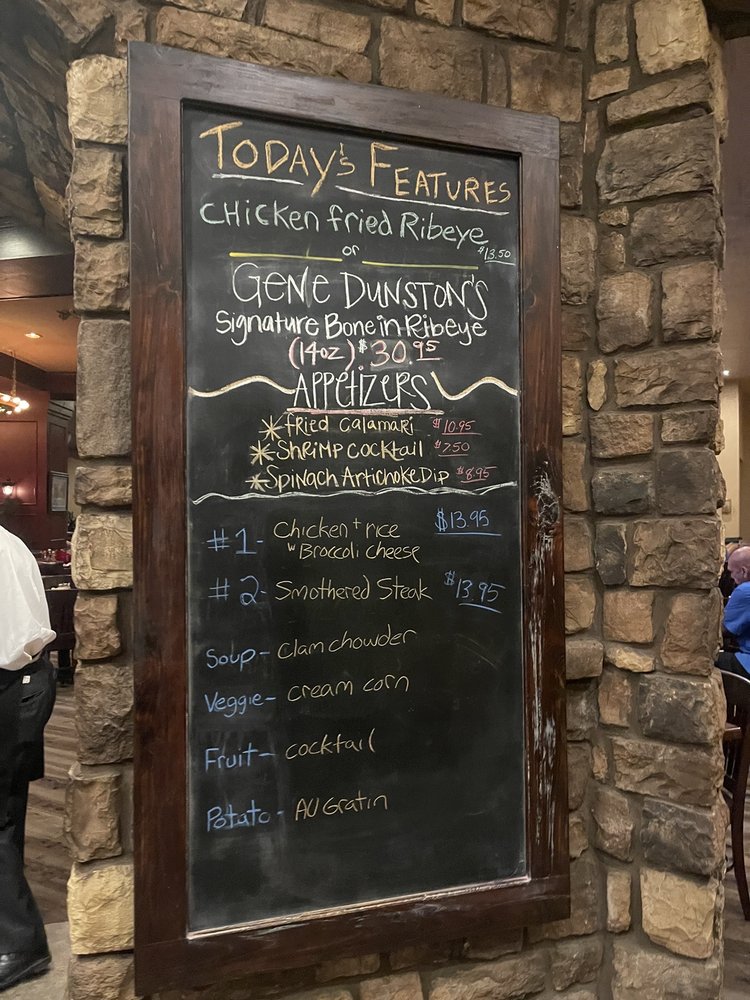 Today's Features
Chicken fried Ribeye
$13.50
or
Gene Dunston's
Signature Bone in Ribeye
(14oz) $30.95
Appetizers
* fried calamari $10.95
* Shrimp cocktail $7.50
* Spinach Artichoke Dip $8.95
#1- Chicken + rice $13.95
w Broccoli cheese
#2- Smothered Steak $13.95
Soup - clam chowder
Veggie - cream corn
Fruit - cocktail
Potato - AU Gratin